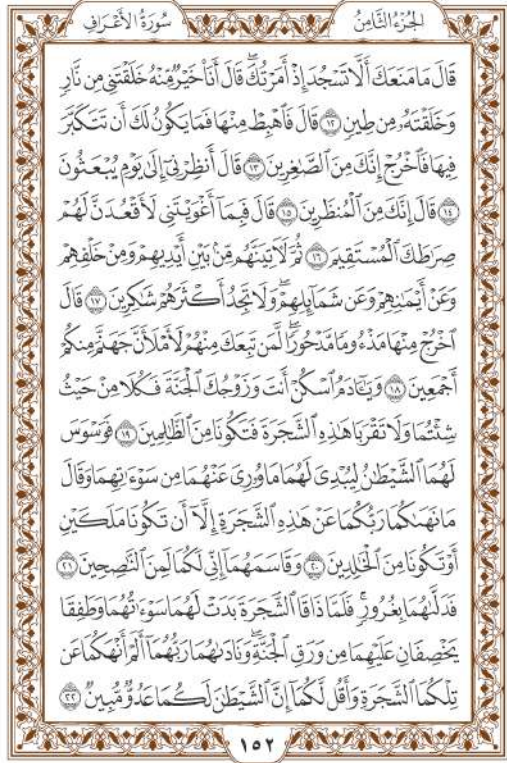 الجُزْءُ الثَّامِنُ
سُورَةُ الأَعْرَافِ
قَالَ مَا مَنَعَكَ أَلَّا تَسْجُدَ إِذْ أَمَرْتُكَ ۖ قَالَ أَنَا۠ خَيْرٌ مِّنْهُ خَلَقْتَنِى مِن نَّارٍ
وَخَلَقْتَهُۥ مِن طِينٍ ١٢ قَالَ فَٱهْبِطْ مِنْهَا فَمَا يَكُونُ لَكَ أَن تَتَكَبَّرَ
فِيهَا فَٱخْرُجْ إِنَّكَ مِنَ ٱلصَّٰغِرِينَ ١٣ قَالَ أَنظِرْنِىٓ إِلَىٰ يَوْمِ يُبْعَثُونَ
١٤ قَالَ إِنَّكَ مِنَ ٱلْمُنظَرِينَ ١٥ قَالَ فَبِمَآ أَغْوَيْتَنِى لَأَقْعُدَنَّ لَهُمْ
صِرَٰطَكَ ٱلْمُسْتَقِيمَ ١٦ ثُمَّ لَءَاتِيَنَّهُم مِّنۢ بَيْنِ أَيْدِيهِمْ وَمِنْ خَلْفِهِمْ
وَعَنْ أَيْمَٰنِهِمْ وَعَن شَمَآئِلِهِمْ ۖ وَلَا تَجِدُ أَكْثَرَهُمْ شَٰكِرِينَ ١٧ قَالَ
ٱخْرُجْ مِنْهَا مَذْءُومًا مَّدْحُورًا ۖ لَّمَن تَبِعَكَ مِنْهُمْ لَأَمْلَأَنَّ جَهَنَّمَ مِنكُمْ
أَجْمَعِينَ ١٨ وَيَٰٓـَٔادَمُ ٱسْكُنْ أَنتَ وَزَوْجُكَ ٱلْجَنَّةَ فَكُلَا مِنْ حَيْثُ
شِئْتُمَا وَلَا تَقْرَبَا هَٰذِهِ ٱلشَّجَرَةَ فَتَكُونَا مِنَ ٱلظَّٰلِمِينَ ١٩ فَوَسْوَسَ
لَهُمَا ٱلشَّيْطَٰنُ لِيُبْدِىَ لَهُمَا مَا وُۥرِىَ عَنْهُمَا مِن سَوْءَٰتِهِمَا وَقَالَ
مَا نَهَىٰكُمَا رَبُّكُمَا عَنْ هَٰذِهِ ٱلشَّجَرَةِ إِلَّآ أَن تَكُونَا مَلَكَيْنِ
أَوْ تَكُونَا مِنَ ٱلْخَٰلِدِينَ ٢٠ وَقَاسَمَهُمَآ إِنِّى لَكُمَا لَمِنَ ٱلنَّٰصِحِينَ ٢١
فَدَلَّىٰهُمَا بِغُرُورٍ ۚ فَلَمَّا ذَاقَا ٱلشَّجَرَةَ بَدَتْ لَهُمَا سَوْءَٰتُهُمَا وَطَفِقَا
يَخْصِفَانِ عَلَيْهِمَا مِن وَرَقِ ٱلْجَنَّةِ ۖ وَنَادَىٰهُمَا رَبُّهُمَآ أَلَمْ أَنْهَكُمَا عَن
تِلْكُمَا ٱلشَّجَرَةِ وَأَقُل لَّكُمَآ إِنَّ ٱلشَّيْطَٰنَ لَكُمَا عَدُوٌّ مُّبِينٌ ٢٢
١٥٢